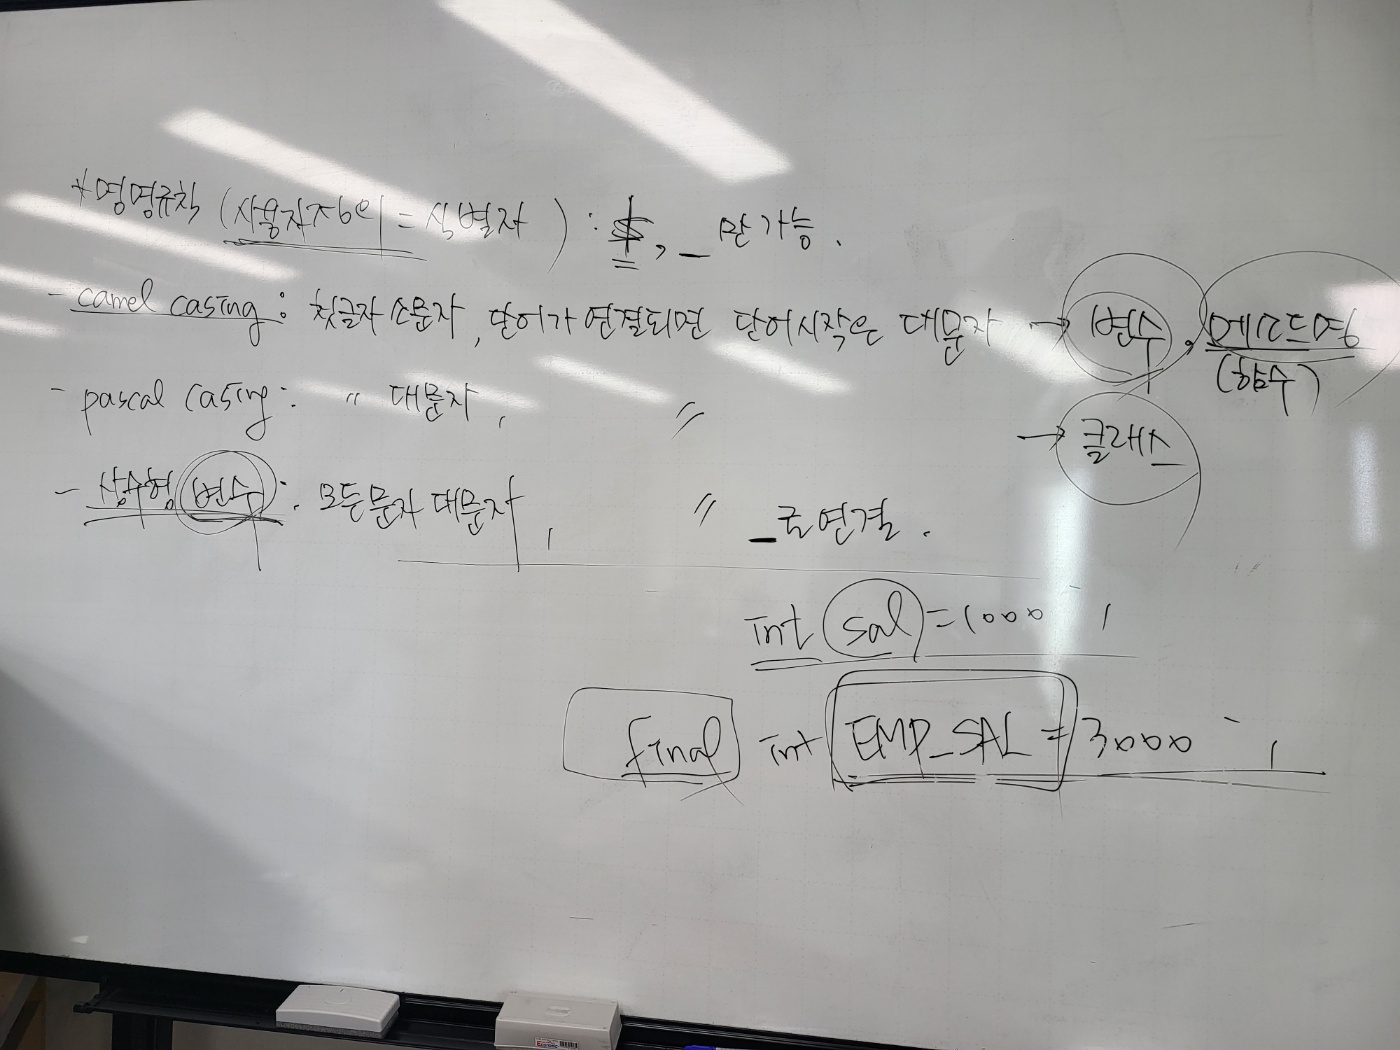 *명명규칙 (사용자정의 = 식별자) : $, _ 만 가능.
- camel casing : 첫글자 소문자, 단어가 연결되면 단어시작은 대문자 → 변수, 메소드명
(함수)
- pascal casing : 〃 대문자, 〃 → 클래스
- 상수형 변수 : 모든문자 대문자, 〃 _로 연결.
int sal = 1000 ;
final int EMP_SAL = 3000 ;